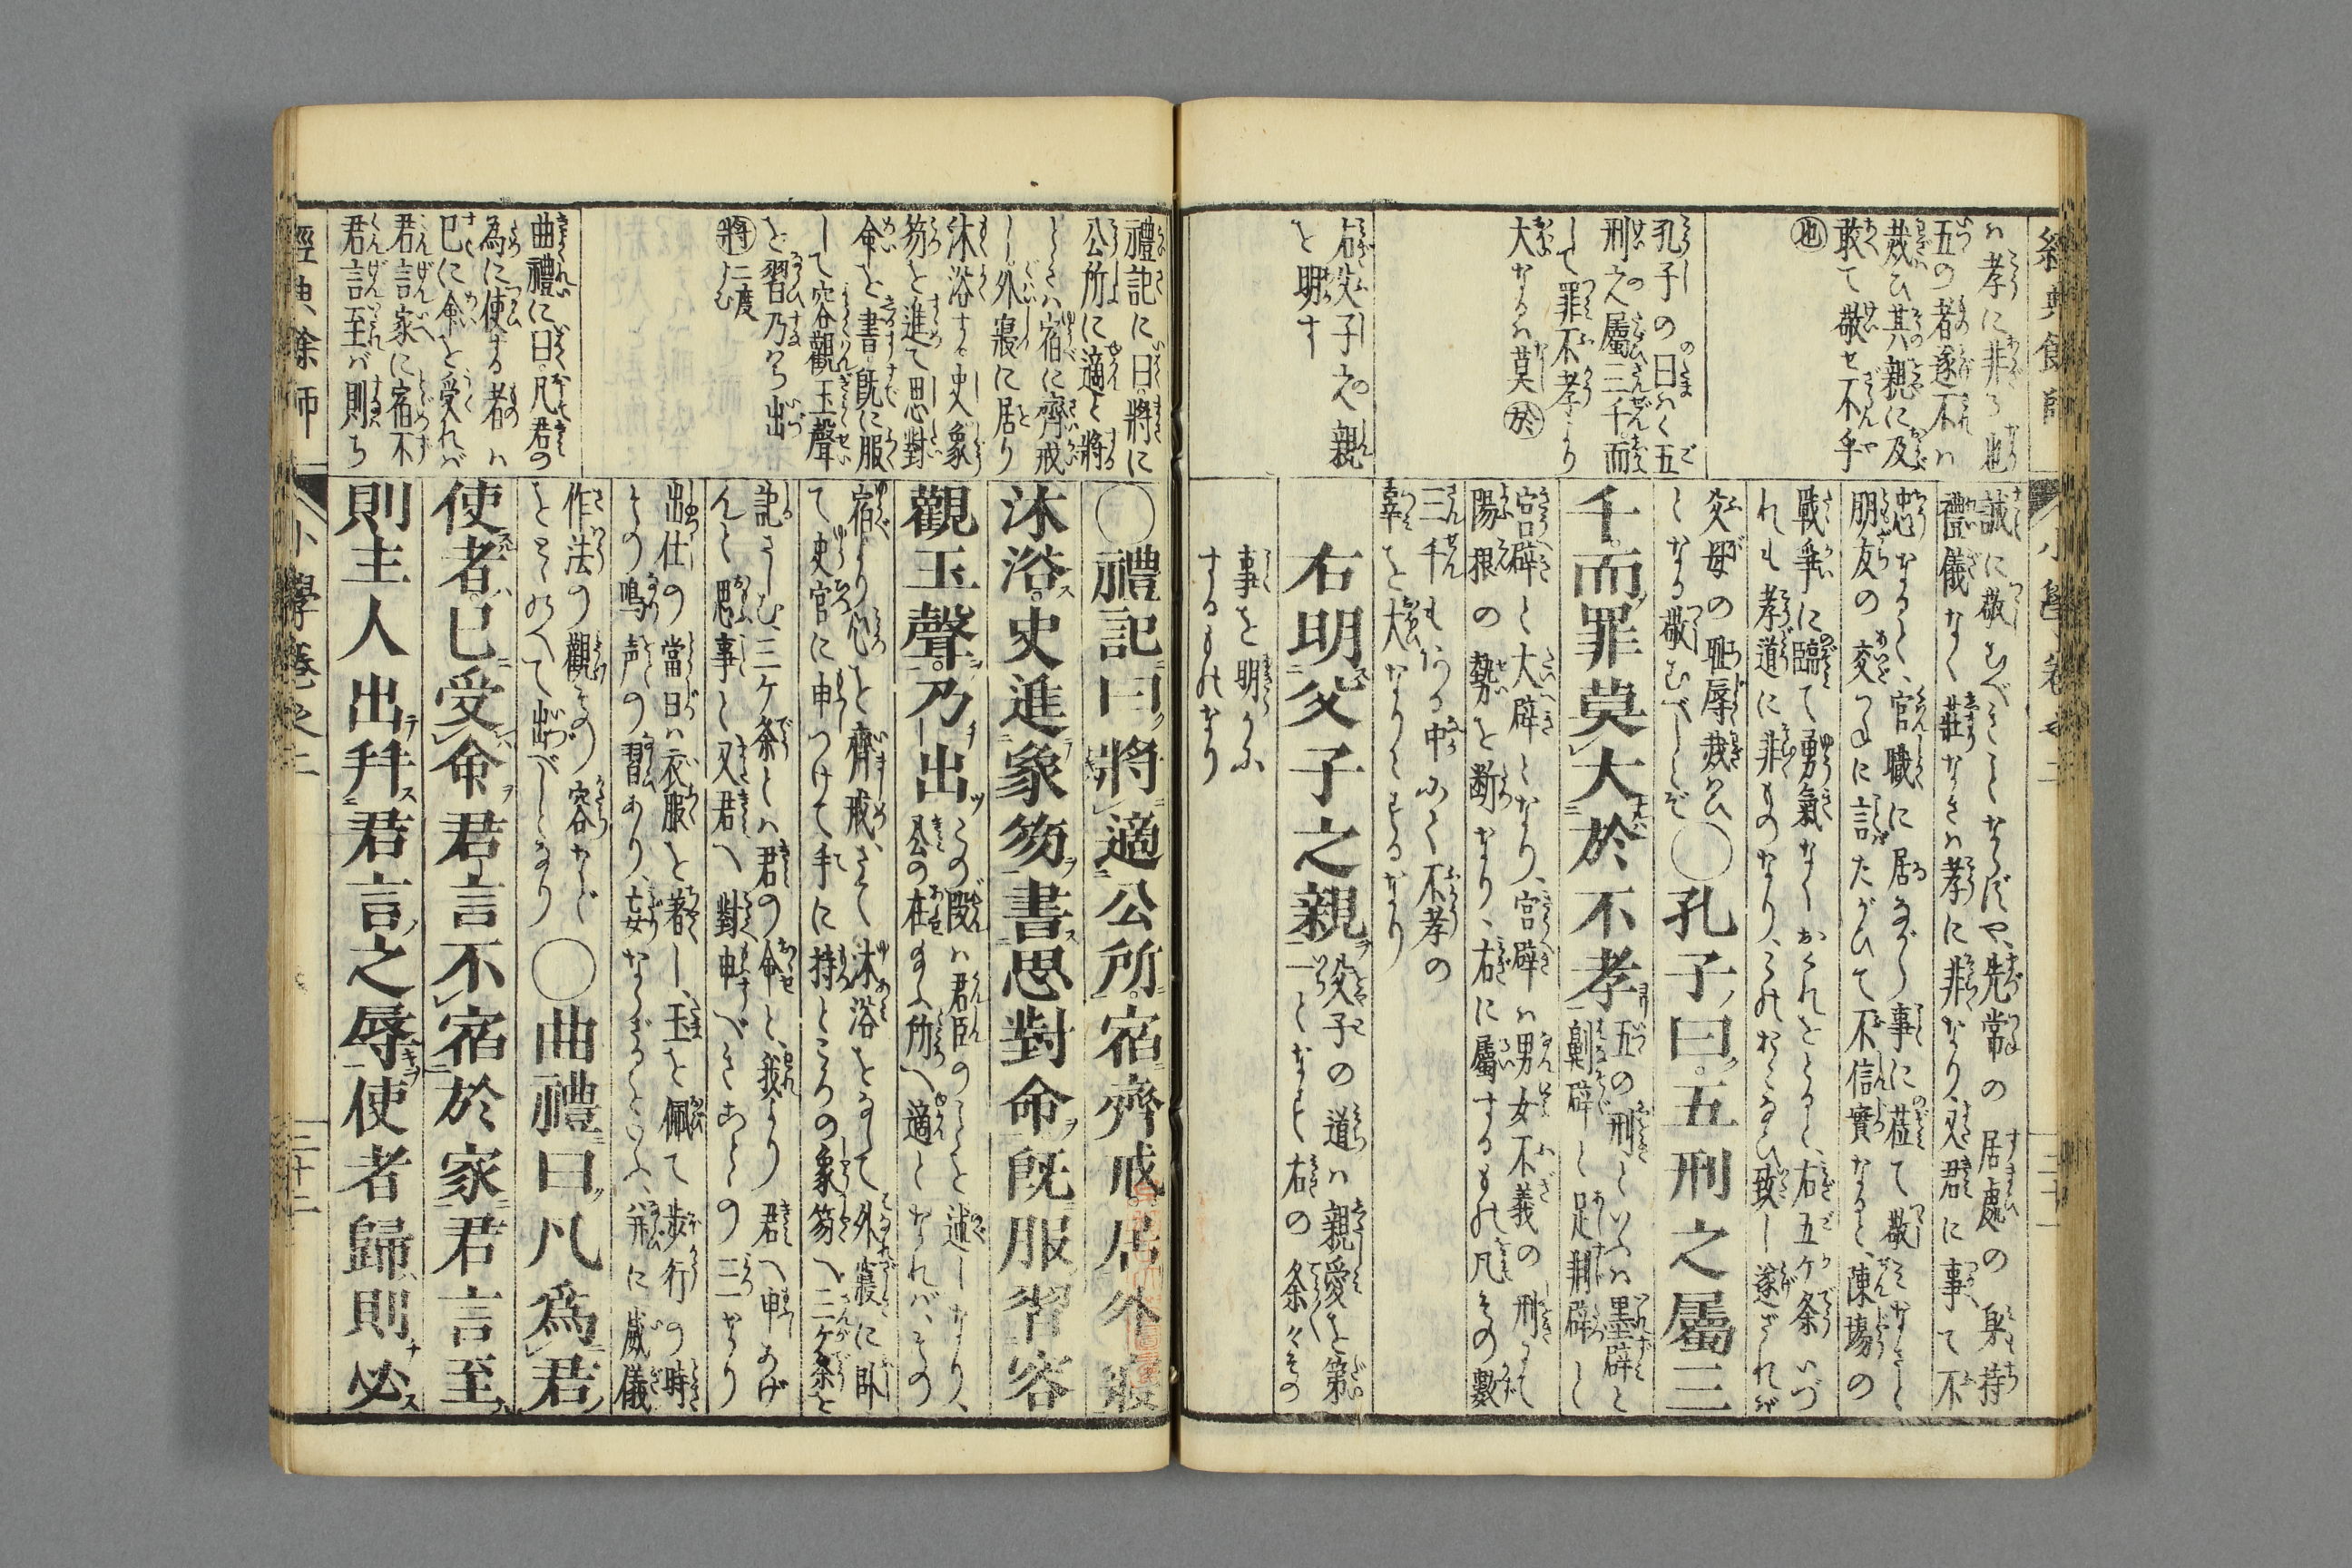 經典餘師
小學卷之二
三十一
は孝に非る也
五の者遂不は
烖ひ其親に及
敢て敬せ不乎
也
孔子の曰はく五
刑之屬三千而
して罪不孝より
大なるは莫し於
右父子之親
を明す
誠に敬むべきことならずや、先常の居處の身持
禮儀なく莊なきは孝に非なり、又君に事て不
忠なると、官職に居ながら事に莅て敬ことなきと
朋友の交つねに言たがひて不信實なると、陳場の
戰爭に臨て勇氣なくおくれをとると、右五ケ条いづ
れも孝道に非ものなり、これおこなひ致し遂ざれば
父母の耻辱烖ひ
となる敬むべしとぞ
○孔子曰。五刑之屬三
千。而罪莫大於不孝
五の刑といふは墨辟と
劓辟と足剕辟と
宮辟と大辟となり、宮辟は男女不義の刑にて
陽根の勢を断なり、右に屬するもの凡その數
三千もある中にて不孝の
辜を大なりとするなり
右明父子之親
父子の道は親愛を第
一となす右の条々その
事を明らかに
するものなり
禮記に曰將に
公所に適と將
ときは宿に齊戒
し外寢に居り
沐浴す史象
笏を進て思對
命を書既に服
して容觀玉聲
を習乃ち出
將二度よむ
曲禮に曰凡君の
為に使する者は
已に命を受れば
君言家に宿不
君言至ば則ち
○禮記曰將適公所。宿齊戒居外寢
沐浴。史進象笏書思對命既服習容
觀玉聲。乃出
この段は君臣のことを述しなり、
公の在ます所へ適となれば、その
宿より心を齊戒、さて沐浴をなして外寢に臥
て史官に申つけて手に持ところの象笏へ三ケ条を
記さしむ、三ケ条とは、君の命と、我より君へ申あげ
んと思事と又君へ對申すべきことの三つなり
出仕の當日は衣服を著し、玉を佩て歩行の時
その鳴声の習あり、妄ならざるをいふ、并に威儀
作法の觀その容など
をとゝのへて出づべしとなり
○曲禮曰凡爲君
使者。已受命君言不宿於家君言至
則主人出拜君言之辱使者歸則必
經典餘師
小學卷之二
三十二